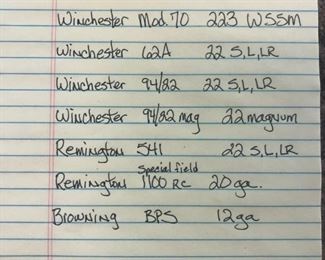 Winchester Mod. 70 223 WSSM
Winchester 62A 22 S,L,LR
Winchester 94/22 22 S,L,LR
Winchester 94/22 mag 22 magnum
Remington 541 22 S,L,LR
Special field
Remington 1100 RC 20 ga.
Browning BPS 12 ga